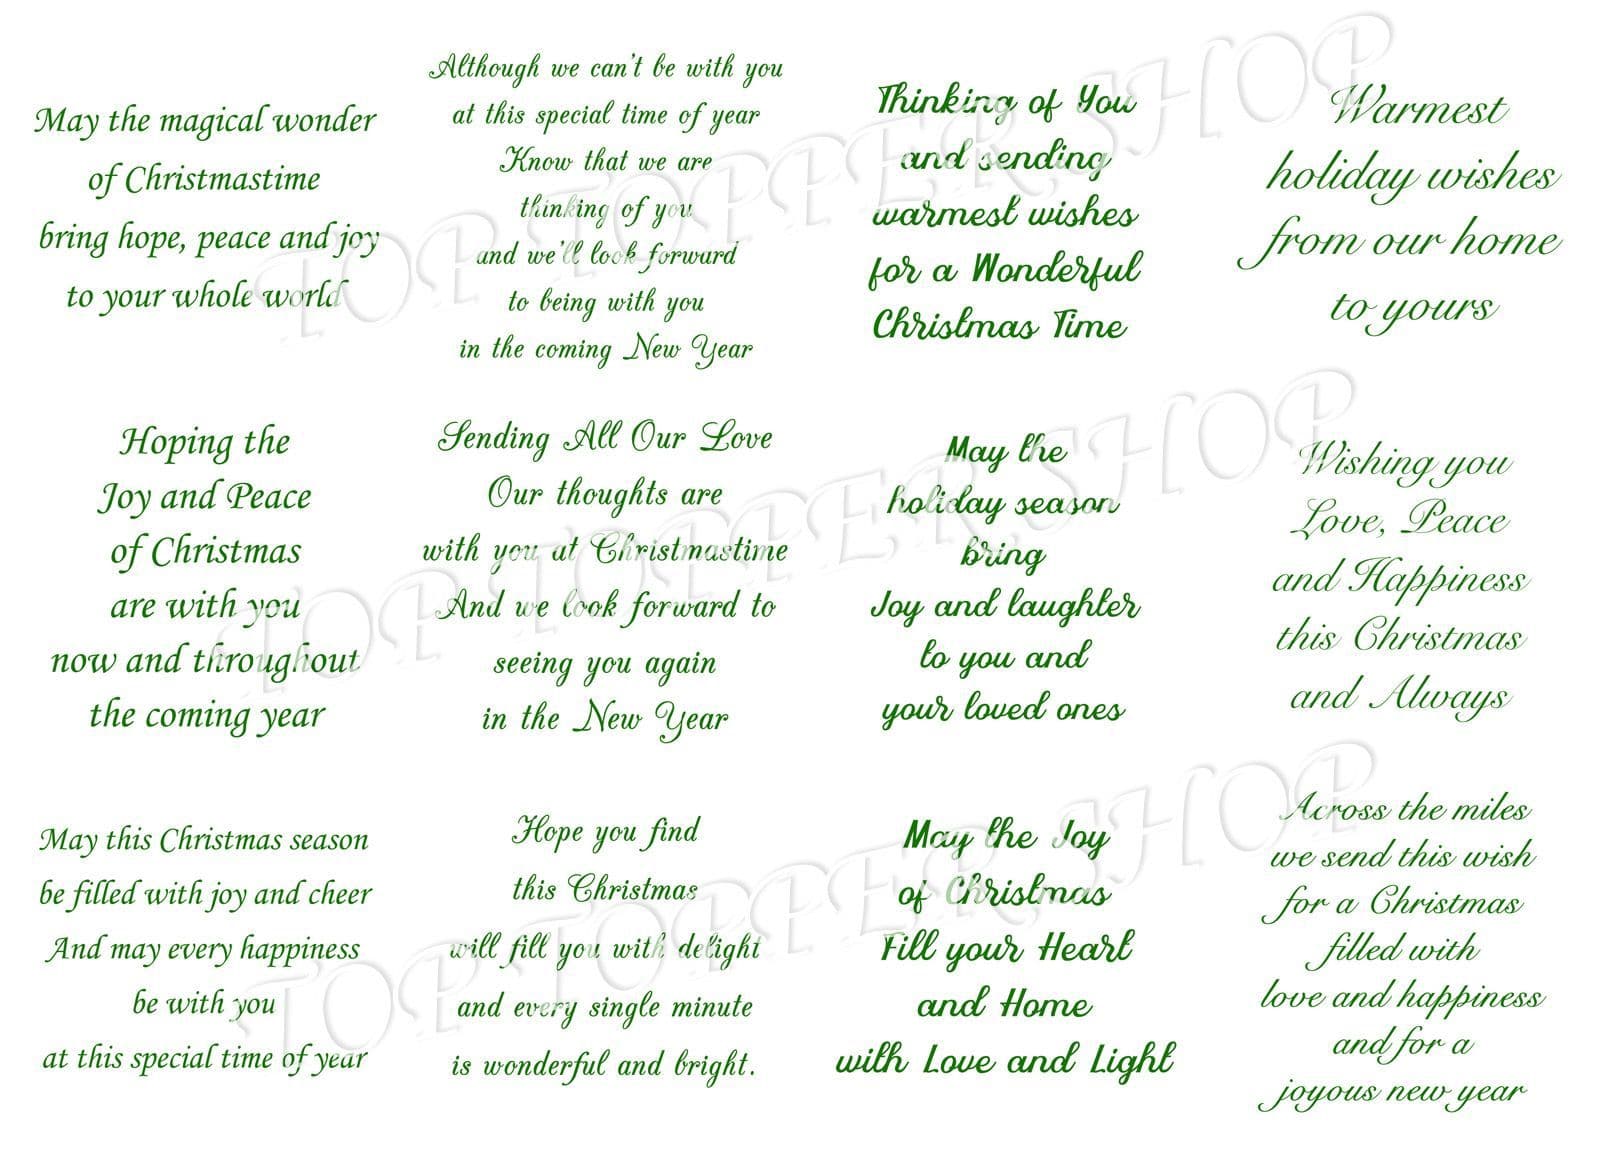 May the magical wonder
of Christmastime
bring hope, peace and joy
to your whole world
Although we can't be with you
at this special time of year
Know that we are
thinking of you
and we'll look forward
to being with you
in the coming New Year
Thinking of You
and sending
warmest wishes
for a Wonderful
Christmas Time
Warmest
holiday wishes
from our home
to yours
Hoping the
Joy and Peace
of Christmas
are with you
now and throughout
the coming year
Sending All Our Love
Our thoughts are
with you at Christmastime
And we look forward to
seeing you again
in the New Year
May the
holiday season
bring
Joy and laughter
to you and
your loved ones
Wishing you
Love, Peace
and Happiness
this Christmas
and Always
May this Christmas season
be filled with joy and cheer
And may every happiness
be with you
at this special time of year
Hope you find
this Christmas
will fill you with delight
and every single minute
is wonderful and bright.
May the Joy
of Christmas
Fill your Heart
and Home
with Love and Light
Across the miles
we send this wish
for a Christmas
filled with
love and happiness
and for a
joyous new year
TOP TOPPER SHOP
TOP TOPPER SHOP
TOP TOPPER SHOP